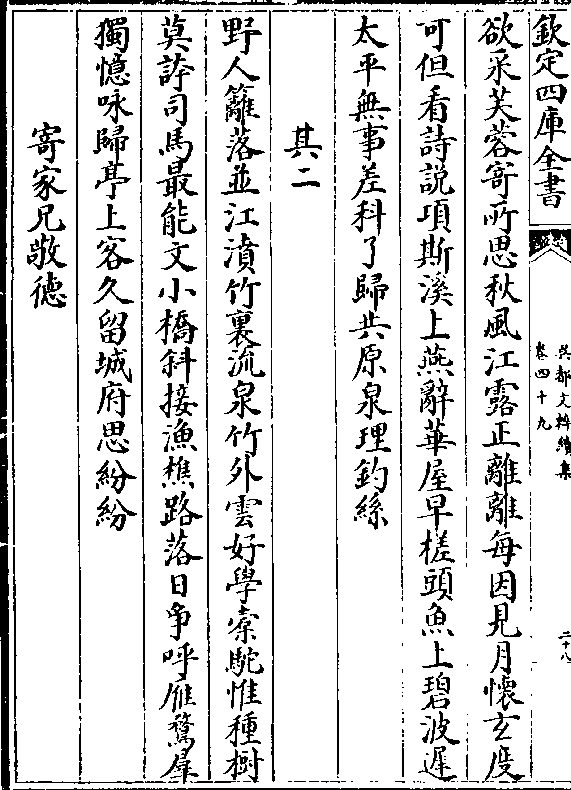 欽定四庫全書
吳都文粹續集
卷四十九
二十八
欲采芙蓉寄所思秋風江露正離離每因見月懷玄度
可但看詩説項斯溪上燕辭華屋早槎頭魚上碧波遲
太平無事差科了歸共原泉理釣絲
其二
野人籬落並江濆竹裏流泉竹外雲好學橐駝惟種樹
莫誇司馬最能文小橋斜接漁樵路落日争呼雁鶩羣
獨憶咏歸亭上客久留城府思紛紛
寄家兄敬德